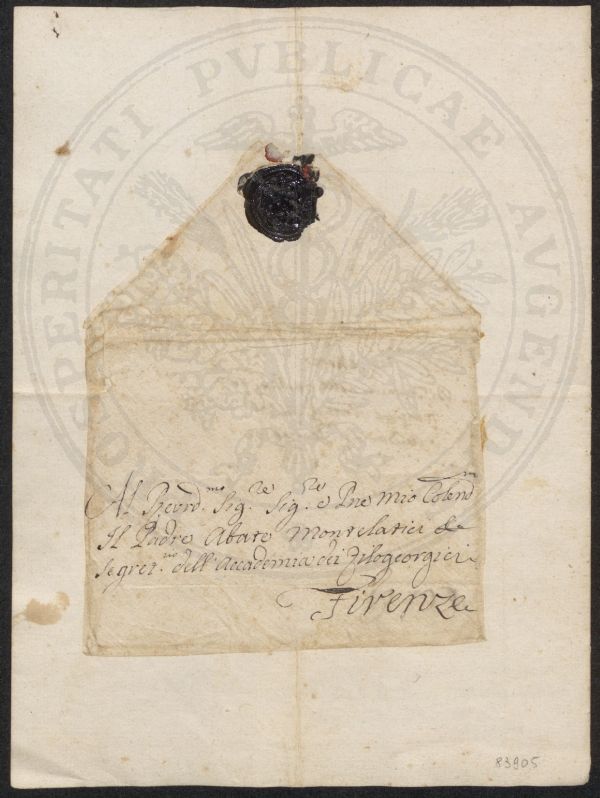 PROSPERITATI PVBLICAE AVGENDAE
Al Revrd.mo Sig.re Sig.re e Pne mio Colend.m
Il Padre Abate Montelatici
Segret.rio dell'Accademia dei Filogeorgici
Firenze
83905